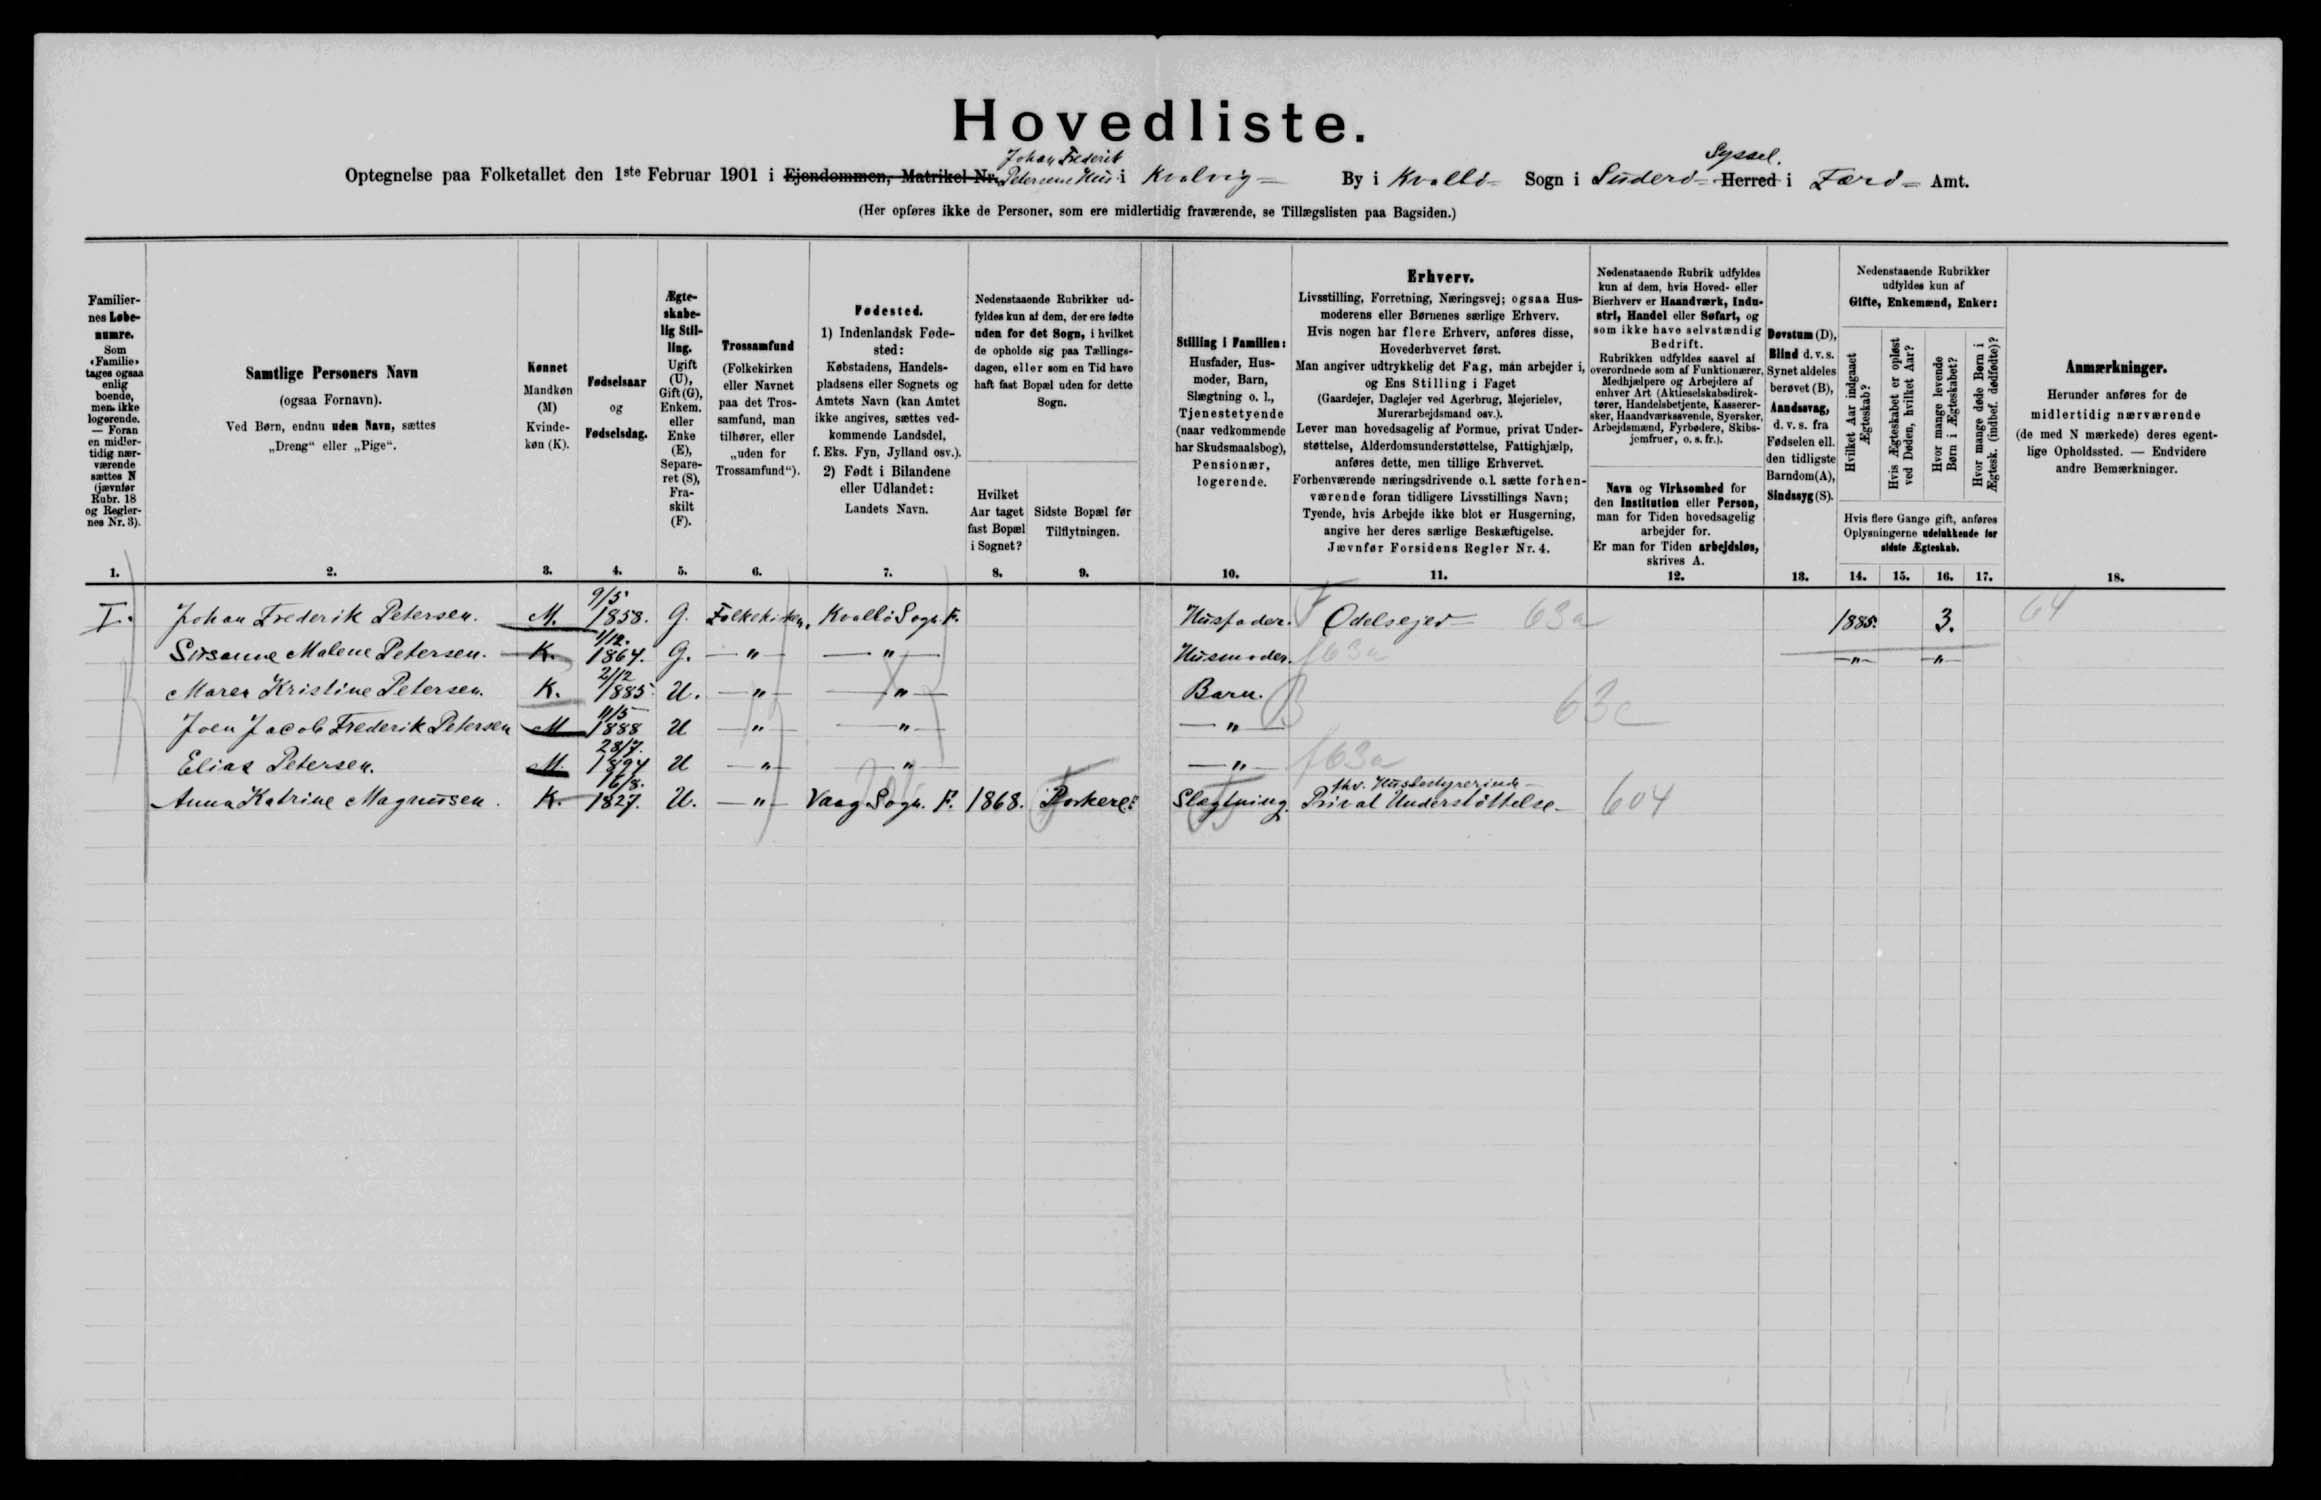 Hovedliste.
Johan Frederik Syssel.
Optegnelse paa Folketallet den 1ste Februar 1901 i Ejendommen, Matrikel Nr. Petersens Hus i Kvalvig By i Kvalbø Sogn i Suderø Herred i Færø Amt.
(Her opføres ikke de Personer, som ere midlertidig fraværende, se Tillægslisten paa Bagsiden.)
Familier-
nes Løbe-
numre.
Som
«Familie»
tages ogsaa
enlig
boende,
men ikke
logerende.
— Foran
en midler-
tidig nær-
værende
sættes N
(jævnfør
Rubr. 18
og Regler-
nes Nr. 3).
1.
Samtlige Personers Navn
(ogsaa Fornavn).
Ved Børn, endnu uden Navn, sættes
„Dreng“ eller „Pige“.
2.
Kønnet
Mandkøn
(M)
Kvinde-
køn (K).
3.
Fødselsaar
og
Fødselsdag.
4.
Ægte-
skabe-
lig Stil-
ling.
Ugift
(U),
Gift (G),
Enkem.
eller
Enke
(E),
Separe-
ret (S),
Fra-
skilt
(F).
5.
Trossamfund
(Folkekirken
eller Navnet
paa det Tros-
samfund, man
tilhører, eller
„uden for
Trossamfund“).
6.
Fødested.
1) Indenlandsk Føde-
sted:
Købstadens, Handels-
pladsens eller Sognets og
Amtets Navn (kan Amtet
ikke angives, sættes ved-
kommende Landsdel,
f. Eks. Fyn, Jylland osv.).
2) Født i Bilandene
eller Udlandet:
Landets Navn.
7.
Nedenstaaende Rubrikker ud-
fyldes kun af dem, der ere fødte
uden for det Sogn, i hvilket
de opholde sig paa Tællings-
dagen, eller som en Tid have
haft fast Bopæl uden for dette
Sogn.
Hvilket
Aar taget
fast Bopæl
i Sognet?
8.
Sidste Bopæl før
Tilflytningen.
9.
Stilling i Familien:
Husfader, Hus-
moder, Barn,
Slægtning o. l.,
Tjenestetyende
(naar vedkommende
har Skudsmaalsbog),
Pensionær,
logerende.
10.
Erhverv.
Livsstilling, Forretning, Næringsvej; ogsaa Hus-
moderens eller Børnenes særlige Erhverv.
Hvis nogen har flere Erhverv, anføres disse,
Hovederhvervet først.
Man angiver udtrykkelig det Fag, man arbejder i,
og Ens Stilling i Faget
(Gaardejer, Daglejer ved Agerbrug, Mejerielev,
Murerarbejdsmand osv.).
Lever man hovedsagelig af Formue, privat Under-
støttelse, Alderdomsunderstøttelse, Fattighjælp,
anføres dette, men tillige Erhvervet.
Forhenværende næringsdrivende o.l. sætte forhen-
værende foran tidligere Livsstillings Navn;
Tyende, hvis Arbejde ikke blot er Husgerning,
angive her deres særlige Beskæftigelse.
Jævnfør Forsidens Regler Nr. 4.
11.
Nedenstaaende Rubrik udfyldes
kun af dem, hvis Hoved- eller
Bierhverv er Haandværk, Indu-
stri, Handel eller Søfart, og
som ikke have selvstændig
Bedrift.
Rubrikken udfyldes saavel af
overordnede som af Funktionærer,
Medhjælpere og Arbejdere af
enhver Art (Aktieselskabsdirek-
tører, Handelsbetjente, Kasserer-
sker, Haandværkssvende, Syersker,
Arbejdsmænd, Fyrbødere, Skibs-
jomfruer, o. s. fr.).
Navn og Virksomhed for
den Institution eller Person,
man for Tiden hovedsagelig
arbejder for.
Er man for Tiden arbejdsløs,
skrives A.
12.
Døvstum (D),
Blind d. v. s.
Synet aldeles
berøvet (B),
Aandssvag,
d. v. s. fra
Fødselen ell.
den tidligste
Barndom (A),
Sindssyg (S).
13.
Nedenstaaende Rubrikker
udfyldes kun af
Gifte, Enkemænd, Enker:
Hvilket Aar indgaaet
Ægteskab?
Hvis Ægteskabet er opløst
ved Døden, hvilket Aar?
Hvor mange levende
Børn i Ægteskabet?
Hvor mange døde Børn i
Ægtesk. (indbef. dødfødte)?
Hvis flere Gange gift, anføres
Oplysningerne udelukkende for
sidste Ægteskab.
14. 15. 16. 17.
Anmærkninger.
Herunder anføres for de
midlertidig nærværende
(de med N mærkede) deres egent-
lige Opholdssted. — Endvidere
andre Bemærkninger.
18.
I. Johan Frederik Petersen. M. 9/5 1858. G. Folkekirken. Kvalbø Sogn F. Husfader. F Odelsejer 63a 1885. 3. 64
Susanne Malene Petersen. K. 1/12. 1864. G. — " — — " — Husmoder. f63a — " — — " —
Maren Kristine Petersen. K. 2/12 1885. U. — " — — " — Barn. B
Joen Jacob Frederik Petersen M 11/5 1888 U — " — — " — — " — 63c
Elias Petersen. M. 28/7. 1894 U — " — — " — — " — f63a
Anna Katrine Magnusen. K. 16/8. 1827. U. — " — Vaag Sogn. F. 1868. Porkere Slægtning. fhv. Husbestyrerinde
Privat Understøttelse. 604